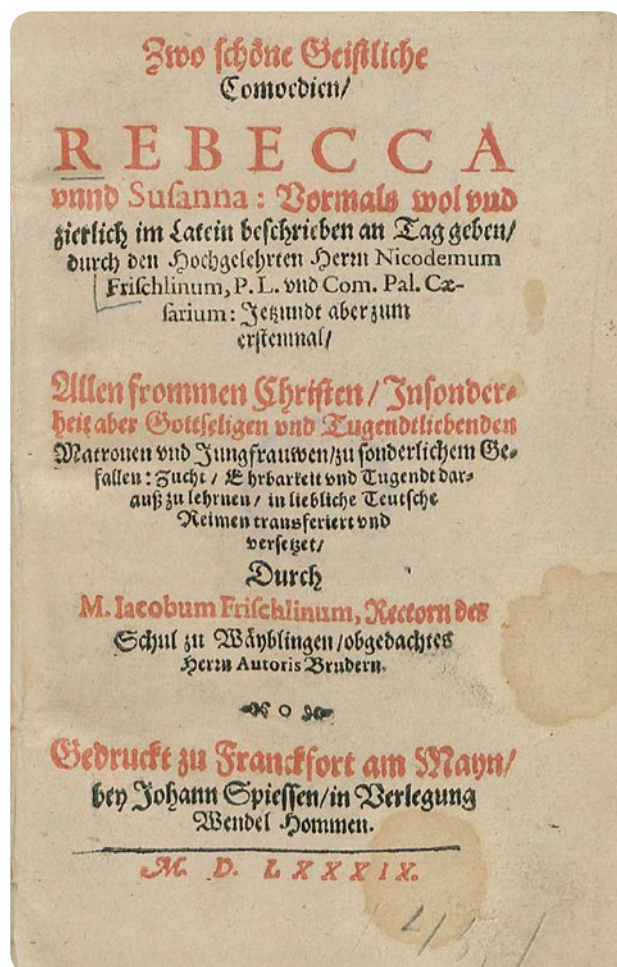 Zwo schöne Geistliche
Comoedien/
REBECCA
vnnd Susanna: Vormals wol vnd
zierlich im Latein beschrieben an Tag geben/
durch den Hochgelehrten Herrn Nicodemum
Frischlinum, P. L. vnd Com. Pal. Cæ-
sarium: Jetzundt aber zum
erstenmal/
Allen frommen Christen/ Insonder-
heit aber Gottseligen vnd Tugendtliebenden
Matronen vnd Jungfrauwen/zu sonderlichem Ge-
fallen: Zucht/ Ehrbarkeit vnd Tugendt dar-
auß zu lehrnen/ in liebliche Teutsche
Reimen transferiert vnd
versetzet/
Durch
M. Iacobum Frischlinum, Rectorn des
Schul zu Wäyblingen/obgedachtes
Herrn Autoris Brudern.
Gedruckt zu Franckfort am Mayn/
bey Johann Spiessen/in Verlegung
Wendel Hommen.
M. D. LXXXIX.